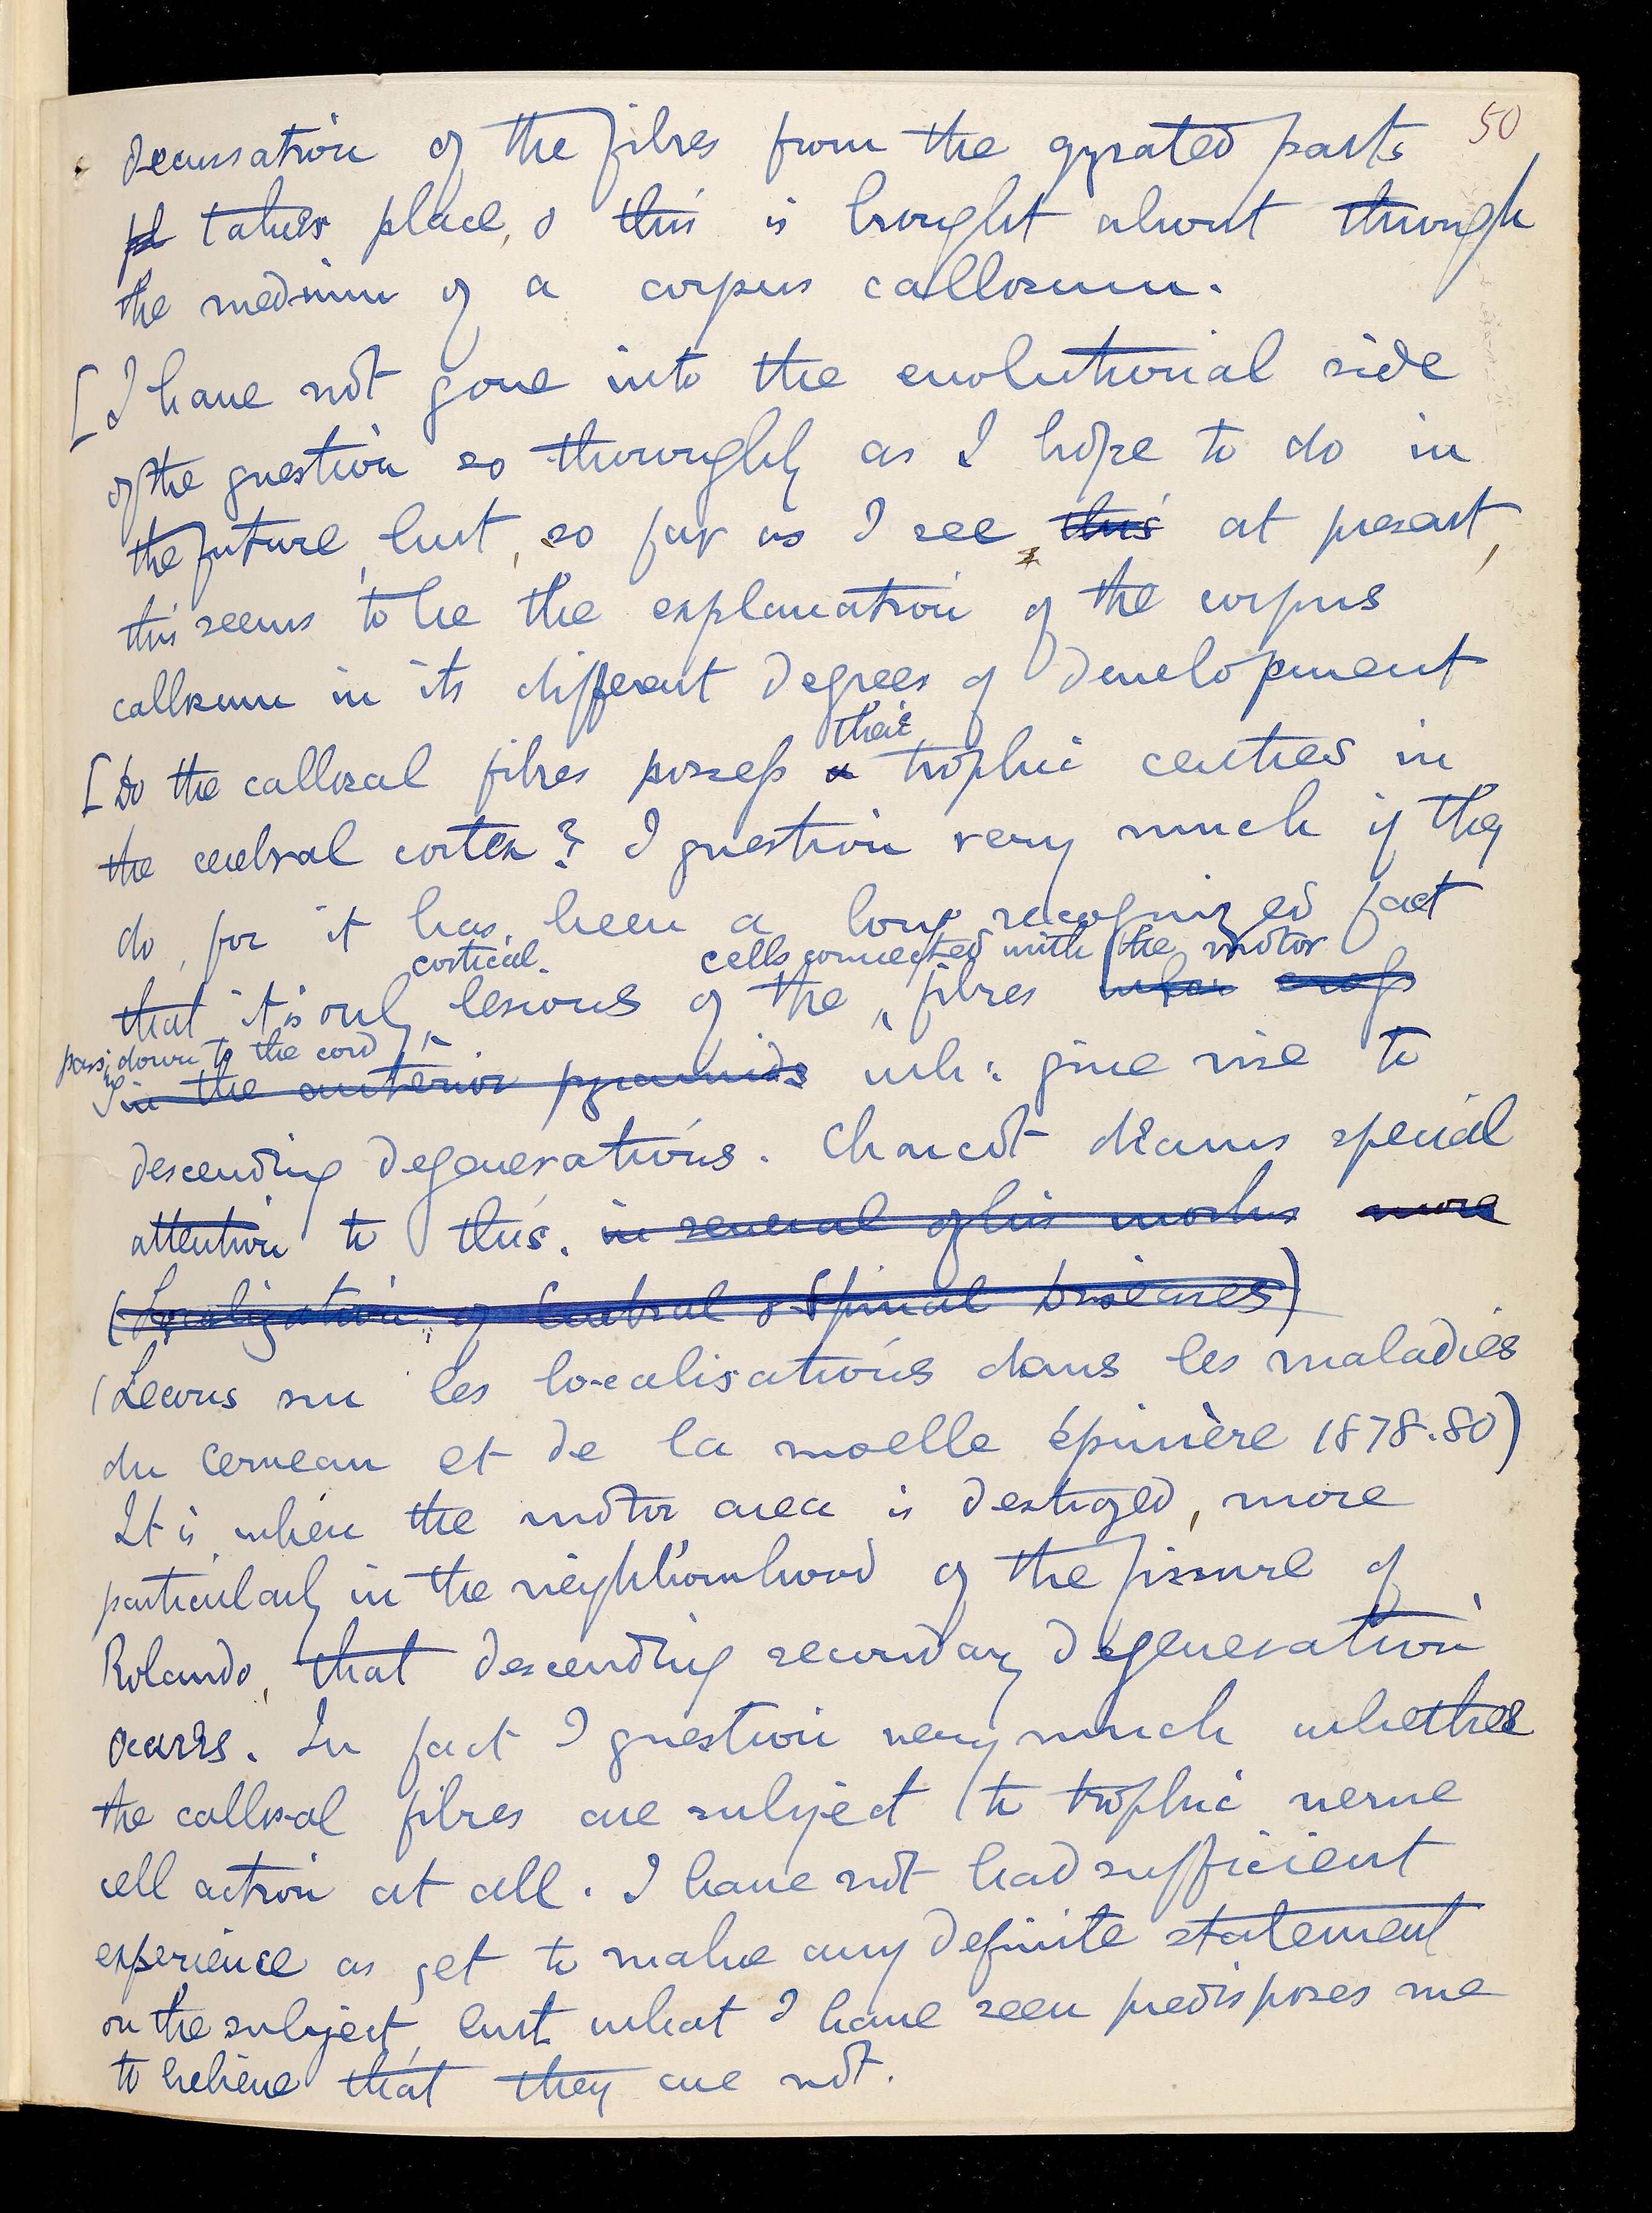 50
decussation of the fibres from the gyrated parts
pl takes place, & this is brought about through
the medium of a corpus callosum.
[I have not gone into the evolutional side
of the question so thoroughly as I hope to do in
the future, but, so far as I see, this at present,
this seems to be the explanation of the corpus
callosum in its different degrees of development
their
[Do the callosal fibres possess a trophic centres in
the cerebral cortex? I question very much if they
do, for it has been a long recognized fact
cortical cells connected with the motor
that it is only lesions of the fibres when cross
passing down to the cord
in the anterior pyramids wh: give rise to
descending degenerations. Charcot draws special
attention to this. in several of his works more
(Localization of Cerebral & Spinal Diseases)
(Lecons sur les localisations dans les maladies
du cerveau et de la moelle épinière 1878.80)
It is when the motor area is destroyed, more
particularly in the neighbourhood of the fissure of
Rolando, that descending secondary degeneration
occurs. In fact I question very much whether
the callosal fibres are subject to trophic nerve
cell action at all. I have not had sufficient
experience as yet to make any definite statement
on the subject, but what I have seen predisposes me
to believe that they are not.